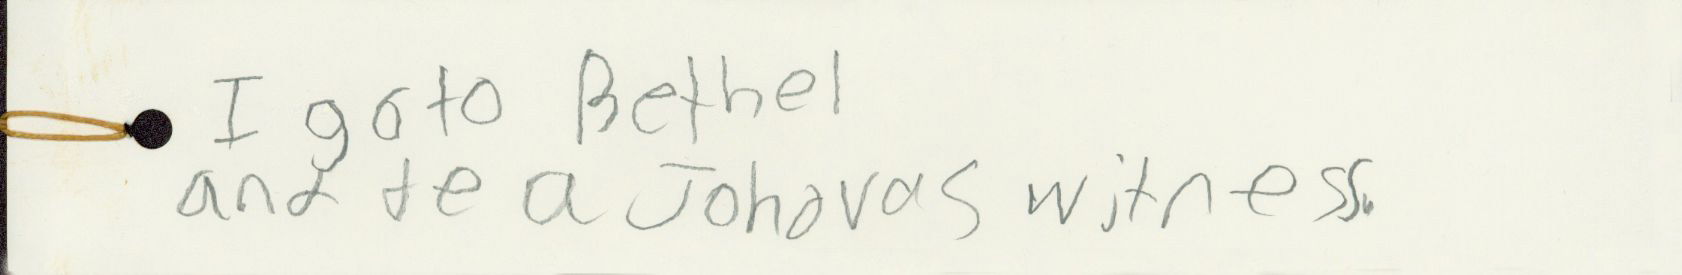 I go to Bethel
and be a Johovas witness.